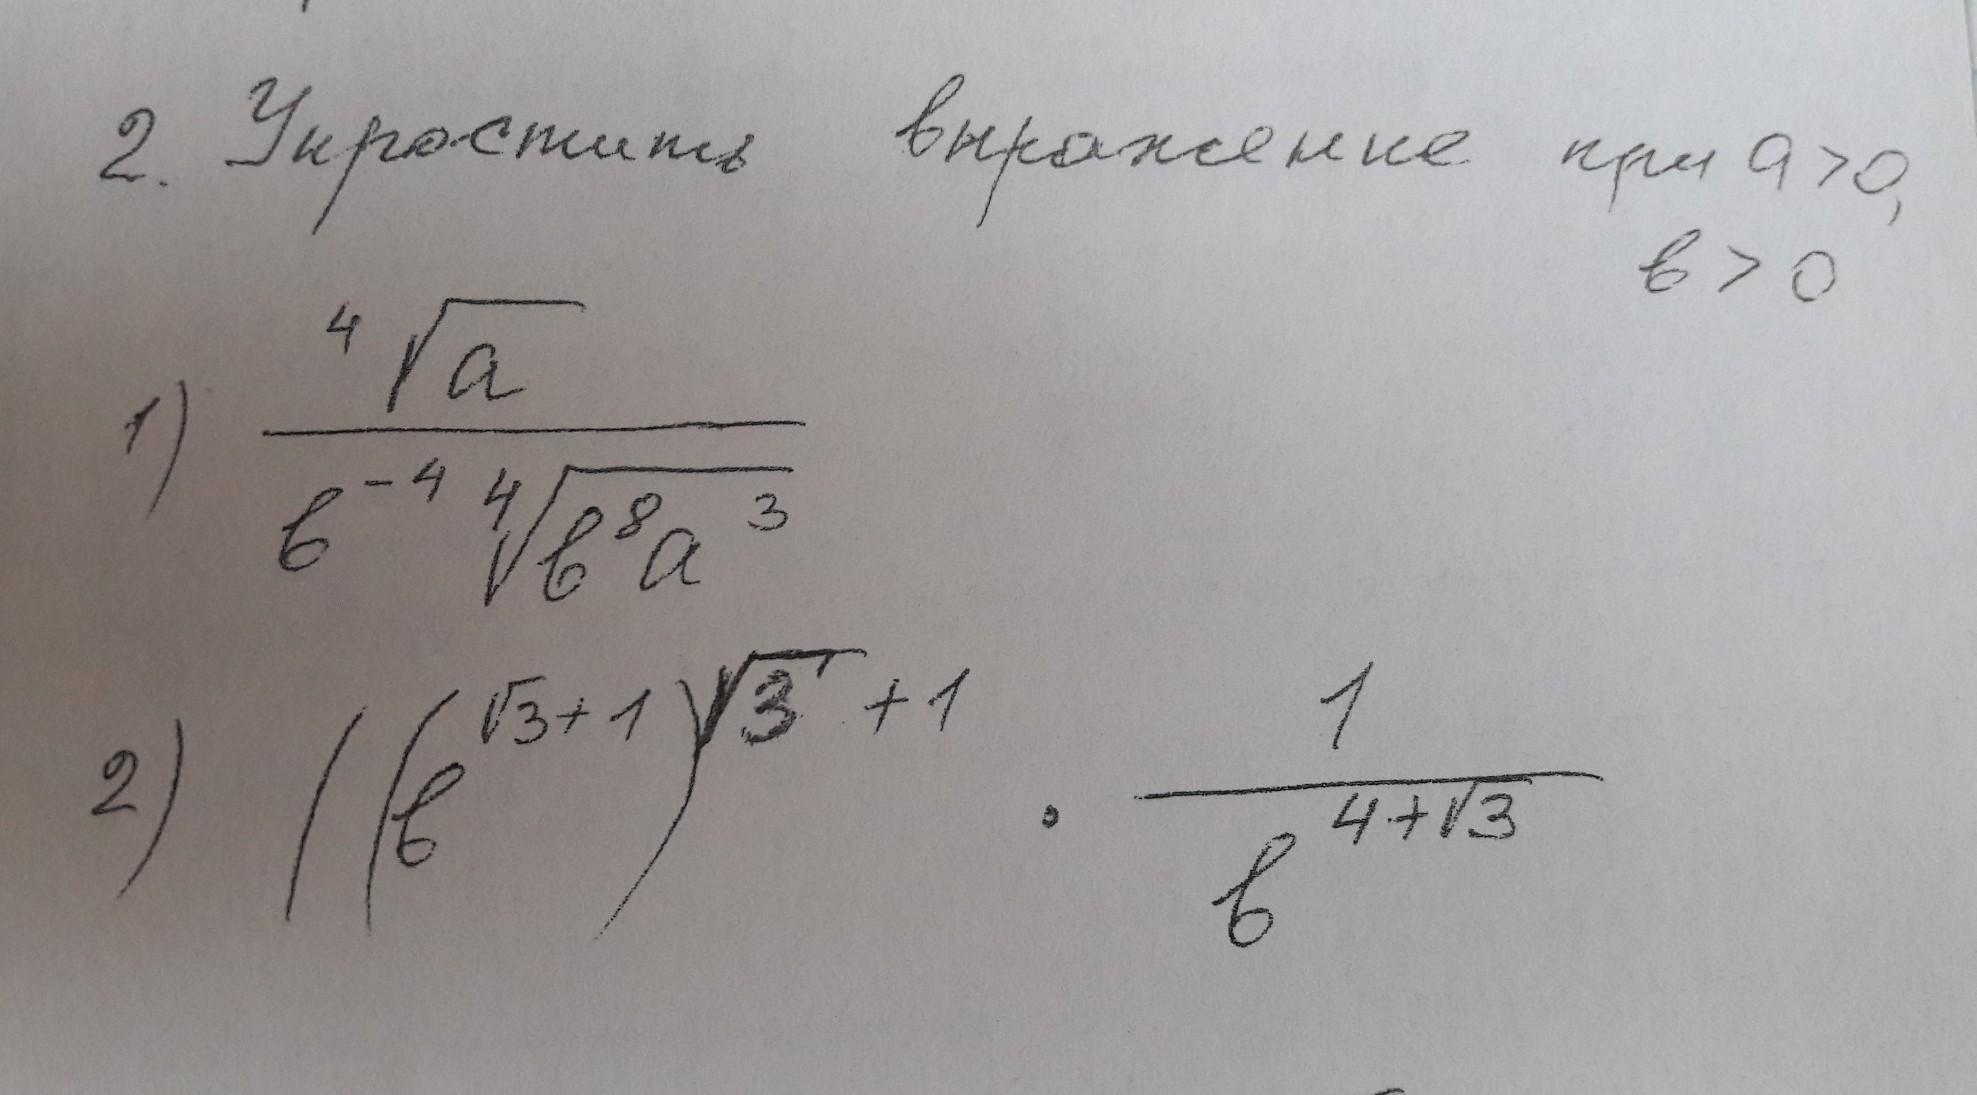 2. Упростить выражение при a>0,
в>0
1) ⁴√a / в⁻⁴ ⁴√в⁸a³
2) ((в^√3+1)^√3+1 · 1 / в^4+√3